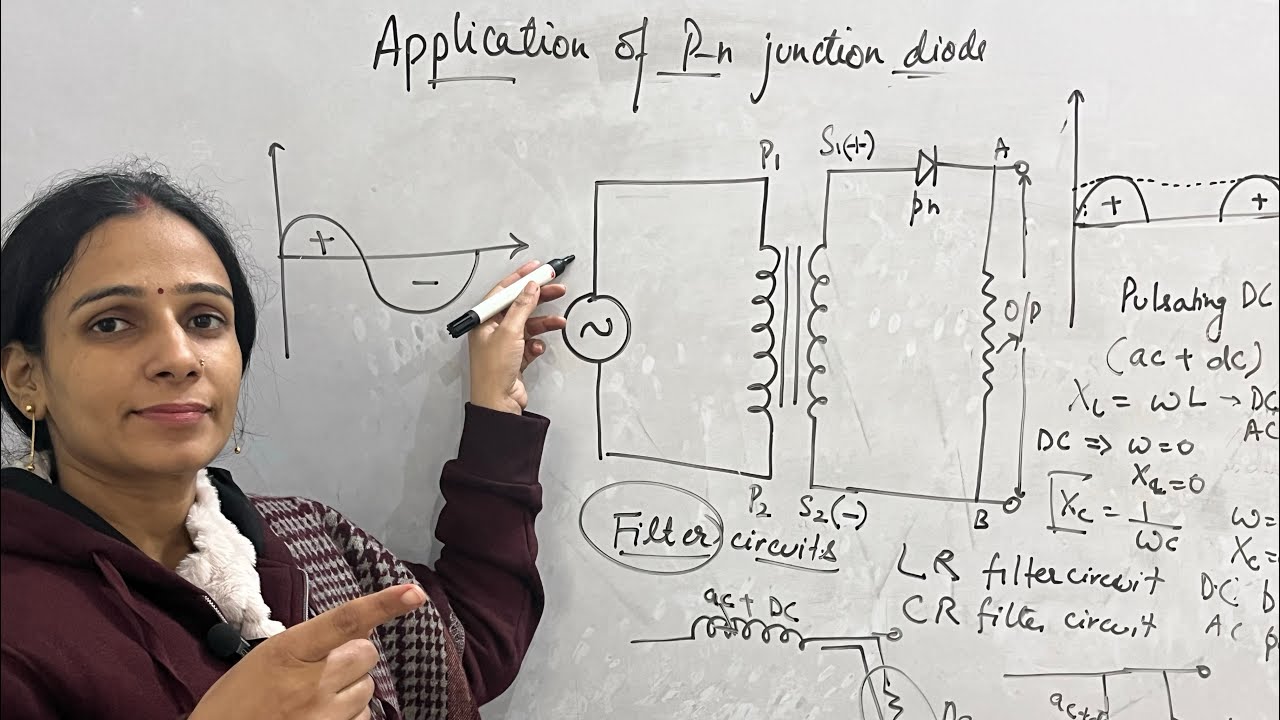 Application of P-n junction diode
P1
S1(+)
A
pn
+
-
~
O/P
+
+
P2
S2(-)
B
Pulsating DC
(ac + dc)
XL = ωL → DC
AC
DC ⇒ ω=0
XL=0
Xc = 1/ωC
ω=
Xc=
Filter circuits
LR filter circuit
CR filter circuit
D.C. b
AC p
ac + DC